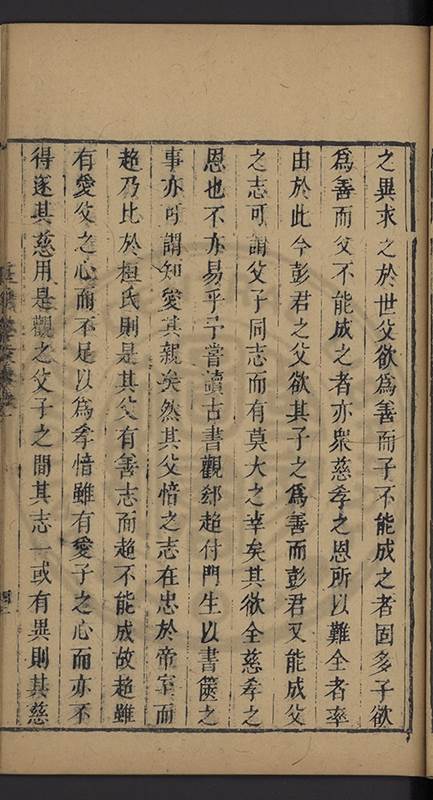 之異求之於世父欲為善而子不能成之者固多子欲
爲善而父不能成之者亦衆慈孝之恩所以難全者率
由於此今彭君之父欲其子之爲善而彭君又能成父
之志可謂父子同志而有莫大之幸矣其欲全慈孝之
恩也不亦易乎予嘗讀古書觀郄超付門生以書篋之
事亦可謂知愛其親矣然其父愔之志在忠於帝室而
超乃比於桓氏則是其父有善志而超不能成故超雖
有愛父之心而不足以爲孝愔雖有愛子之心而亦不
得遂其慈用是觀之父子之間其志一或有異則其慈